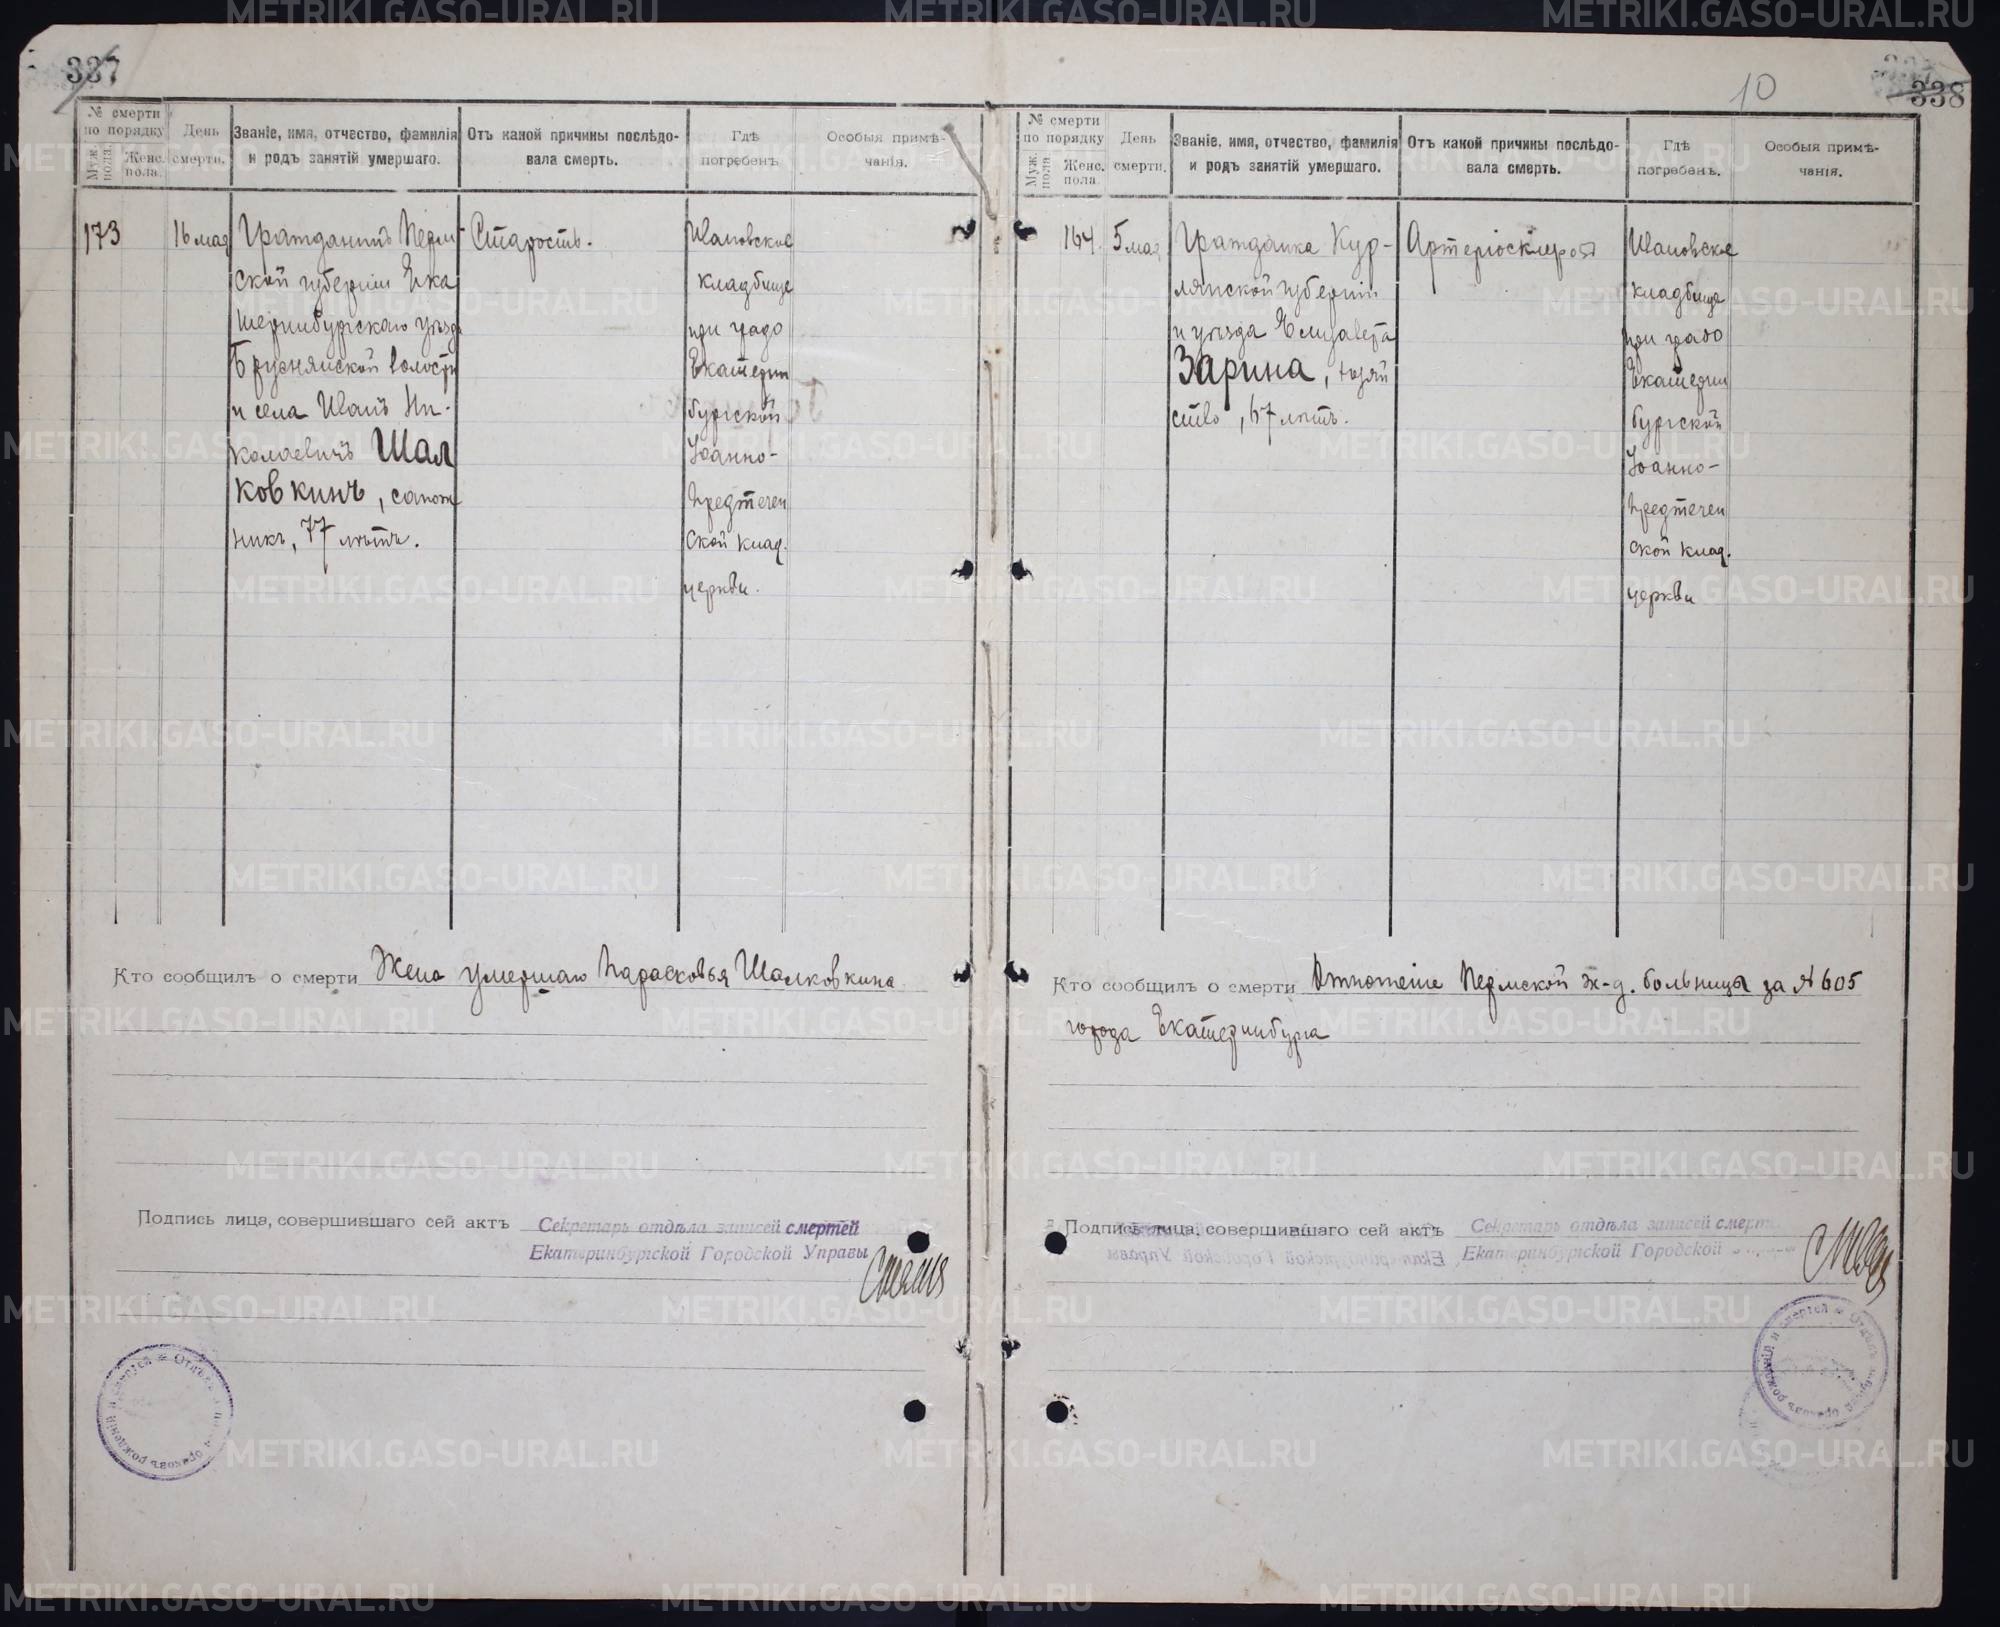 337
№ смерти по порядку
Муж. пола.
Женс. пола.
День смерти.
Званіе, имя, отчество, фамилія и родъ занятій умершаго.
Отъ какой причины послѣдовала смерть.
Гдѣ погребенъ.
Особыя примѣчанія.
173
16 мая
Гражданинъ Перм-
ской губерніи Ека
теринбургскаго уѣзда
Бруснянской волости
и села Иванъ Ни-
колаевичъ Шал
ковкинъ, сапож
никъ, 77 лѣтъ.
Старость.
Ивановское
кладбище
при градо
Екатерин
бургской
Іоанно-
Предтечен
ской клад.
церкви.
Кто сообщилъ о смерти Жена умершаго Парасковья Шалковкина
Подпись лица, совершившаго сей актъ Секретарь отдѣла записей смертей
Екатеринбургской Городской Управы
10
338
№ смерти по порядку
Муж. пола.
Женс. пола.
День смерти.
Званіе, имя, отчество, фамилія и родъ занятій умершаго.
Отъ какой причины послѣдовала смерть.
Гдѣ погребенъ.
Особыя примѣчанія.
164.
5 мая
Гражданка Кур-
ляндской губерніи
и уѣзда Елизавета
Зарина, хозяй
ство, 67 лѣтъ.
Артеріосклерозъ
Ивановское
кладбище
при градо
Екатерин
бургской
Іоанно-
Предтечен
ской клад.
церкви
Кто сообщилъ о смерти Отношеніе Пермской ж-д. больницы за № 605
города Екатеринбурга
Подпись лица, совершившаго сей актъ Секретарь отдѣла записей смерт
Екатеринбургской Городской
METRIKI.GASO-URAL.RU